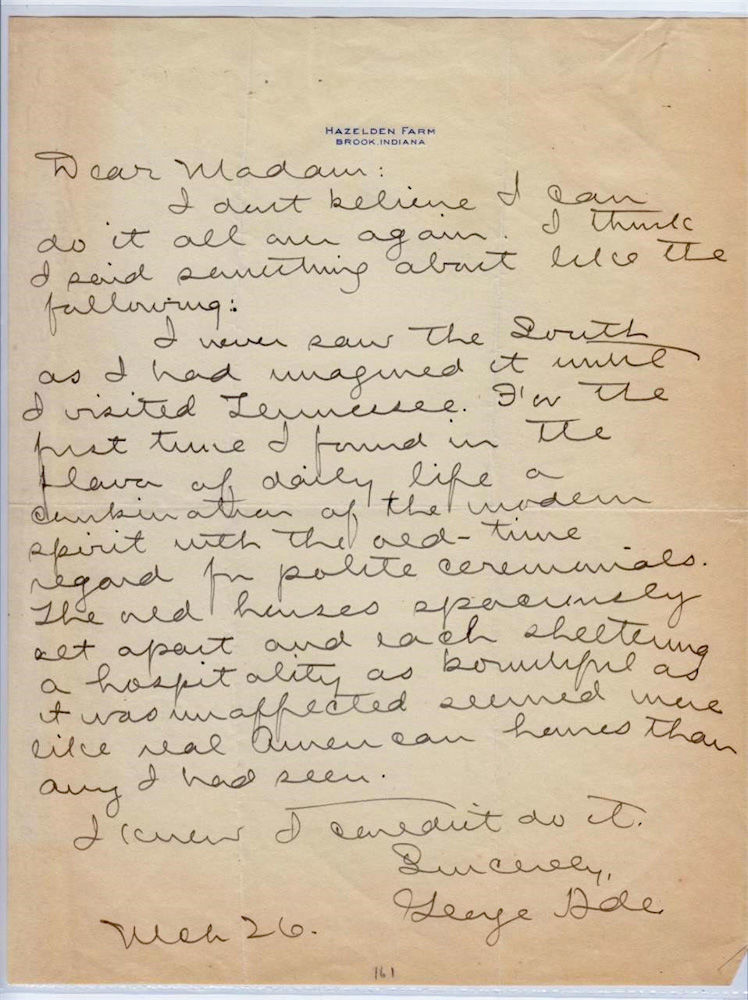 HAZELDEN FARM
BROOK, INDIANA
Dear Madam:
I don't believe I can
do it all over again. I think
I said something about like the
following:
I never saw the South
as I had imagined it until
I visited Tennessee. For the
first time I found in the
flavor of daily life a
combination of the modern
spirit with the old-time
regard for polite ceremonials.
The old houses spaciously
set apart and each sheltering
a hospitality as bountiful as
it was unaffected seemed more
like real American homes than
any I had seen.
I knew I couldn't do it.
Sincerely,
George Ade
Mch 26.
161